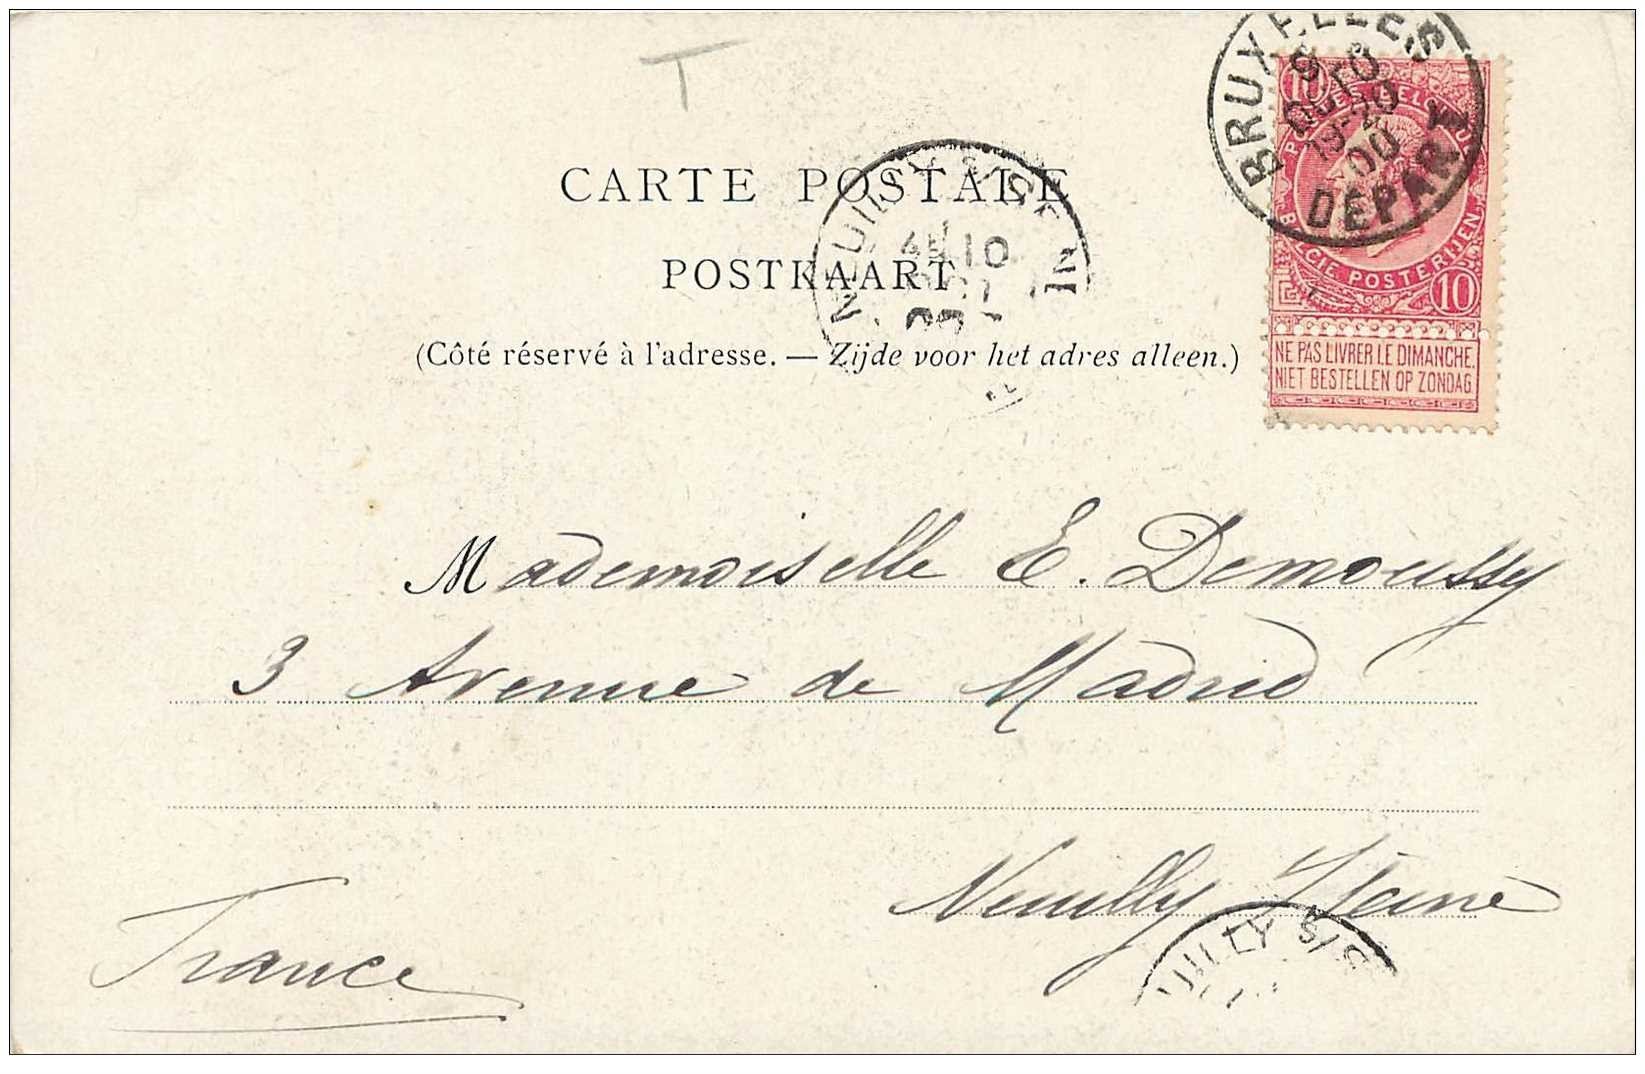 T
BRUXELLES
9
OCTO
19-20
00
DEPART
10
POSTES BELGIQUE
BELGIE POSTERIJEN
10
NE PAS LIVRER LE DIMANCHE
NIET BESTELLEN OP ZONDAG
CARTE POSTALE
POSTKAART
(Côté réservé à l'adresse. — Zijde voor het adres alleen.)
NEUILLY S/SEINE
10
Mademoiselle E. Demoussy
3 Avenue de Madrid
Neuilly s/Seine
France
UILLY S/S